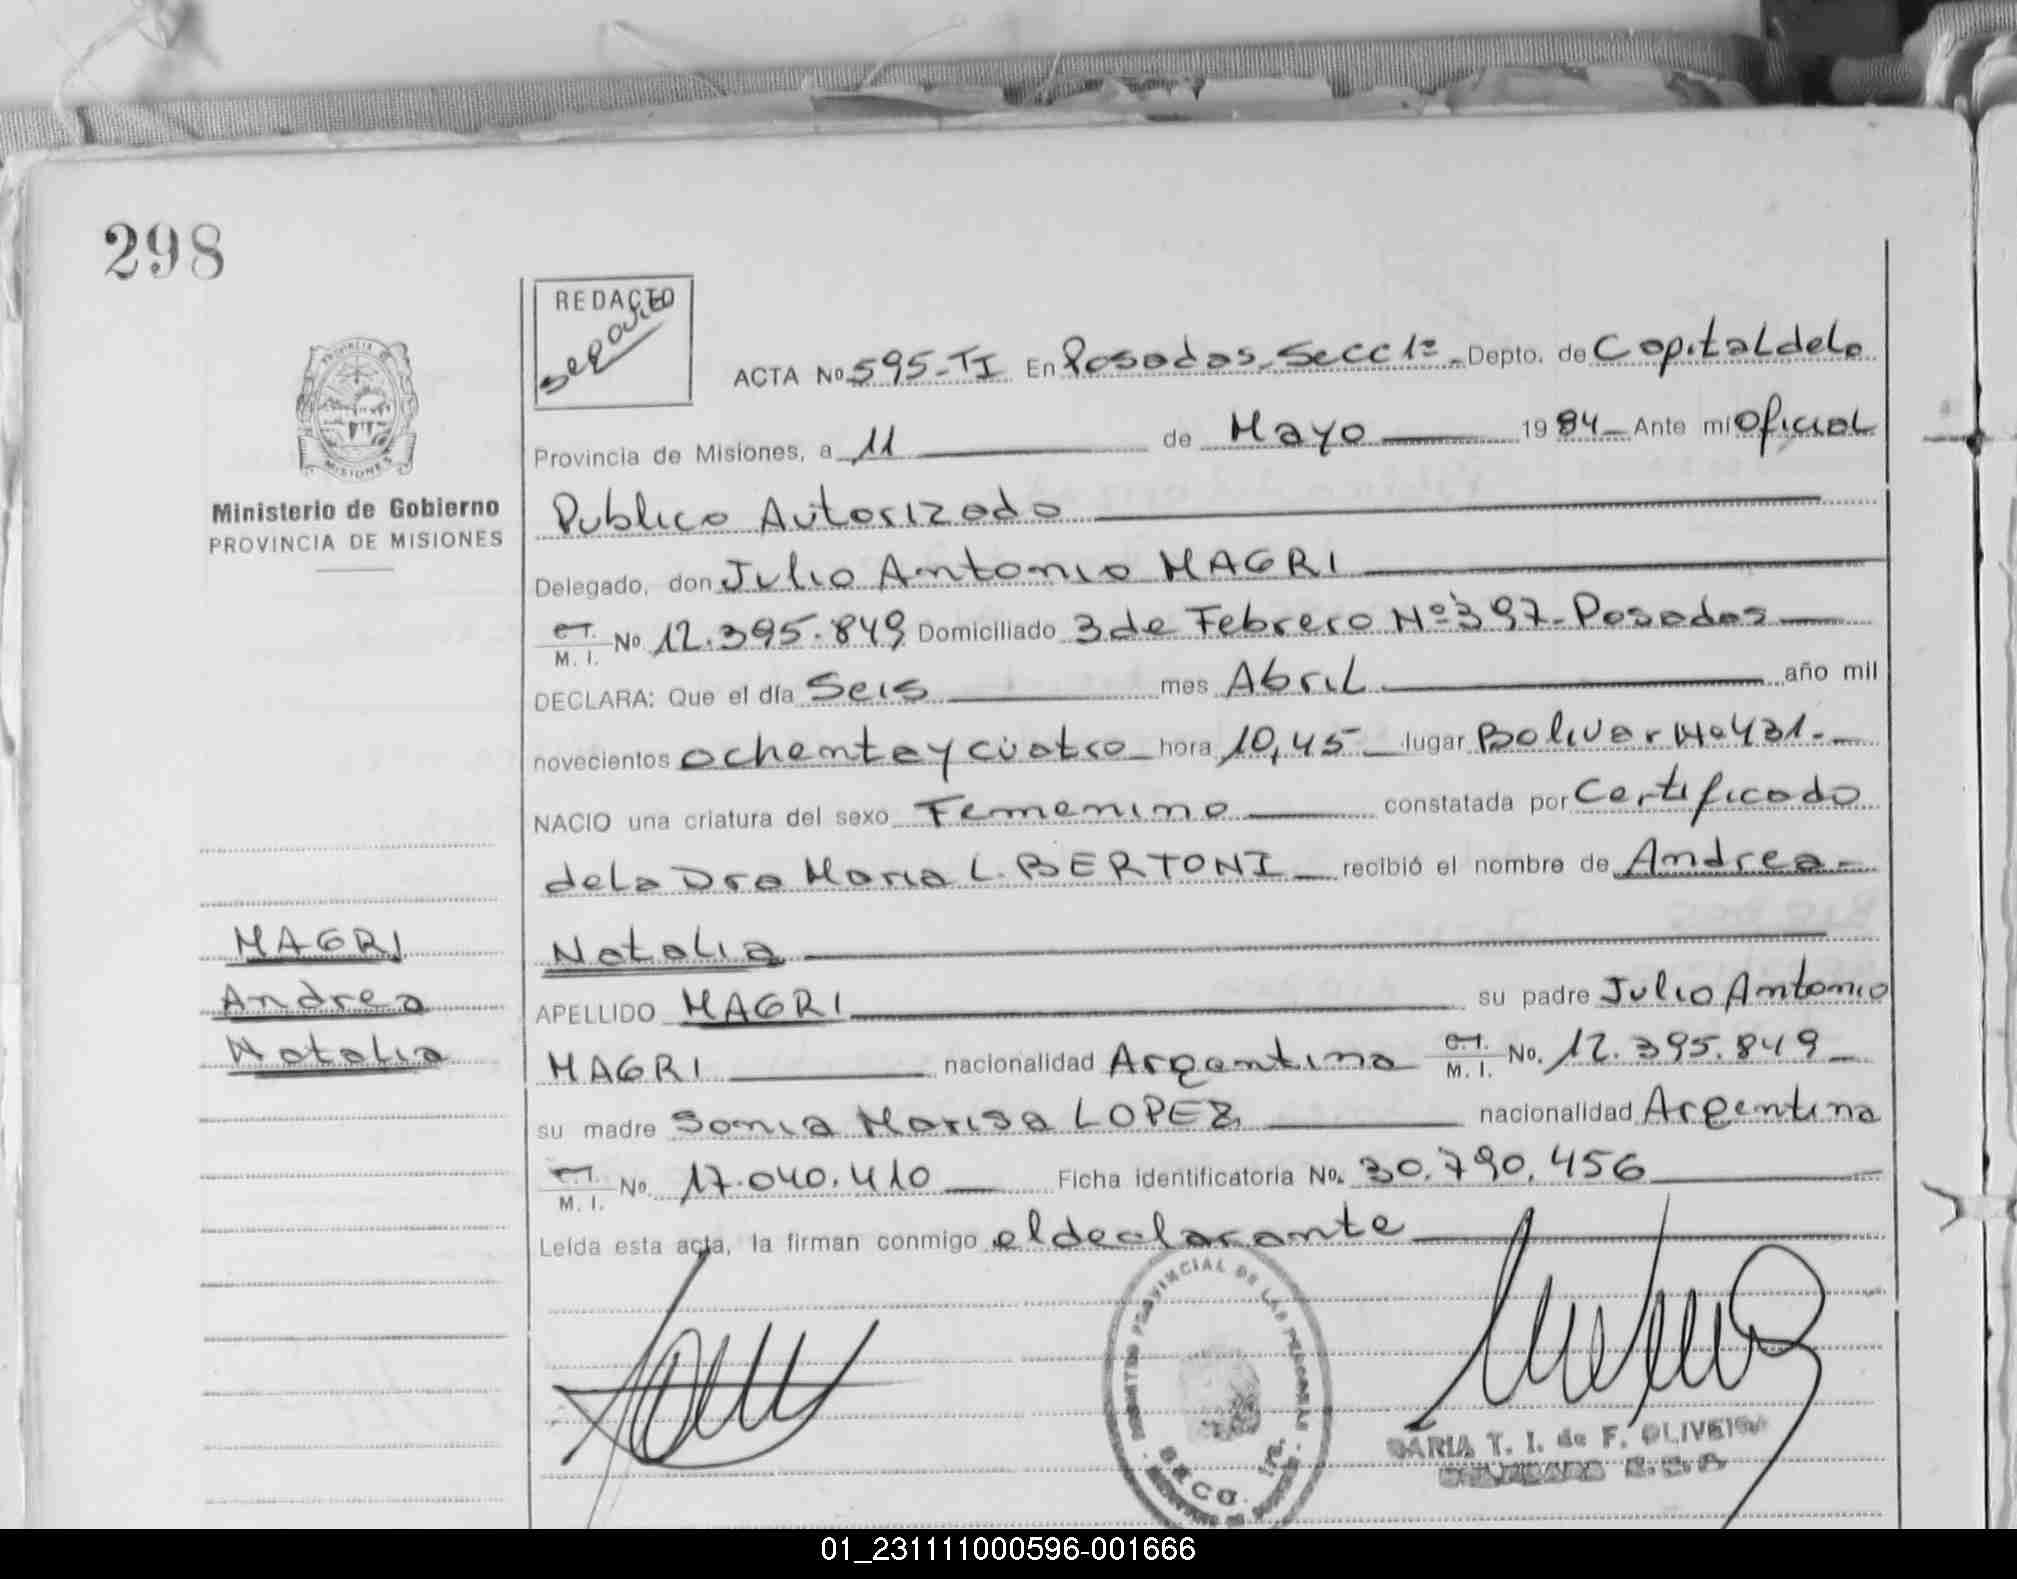 298
REDACTO
ACTA No 595-TI En Posadas, Secc 1ª Depto. de Capital de la
Provincia de Misiones, a 11 de Mayo 1984 Ante mí Oficial
PROVINCIA DE
MISIONES
Ministerio de Gobierno
PROVINCIA DE MISIONES
Publico Autorizado
Delegado, don Julio Antonio MAGRI
C.I.
M. I. No 12.395.849 Domiciliado 3 de Febrero Nº 397-Posadas
DECLARA: Que el día Seis mes Abril año mil
novecientos ochenta y cuatro hora 10,45 lugar Bolivar Nº 431.
NACIO una criatura del sexo Femenino constatada por Certificado
de la Dra Maria L. BERTONI recibió el nombre de Andrea
Natalia
MAGRI
Andrea
Natalia
APELLIDO MAGRI su padre Julio Antonio
MAGRI nacionalidad Argentina C.I.
M. I. No. 12.395.849
su madre Sonia Marisa LOPEZ nacionalidad Argentina
C.I.
M. I. No. 17.040.410 Ficha identificatoria No. 30.790.456
Leída esta acta, la firman conmigo el declarante
PROVINCIAL DE LAS PERSONAS
SECC. 1ra.
T. I. de F. OLIVEIRA
01_231111000596-001666